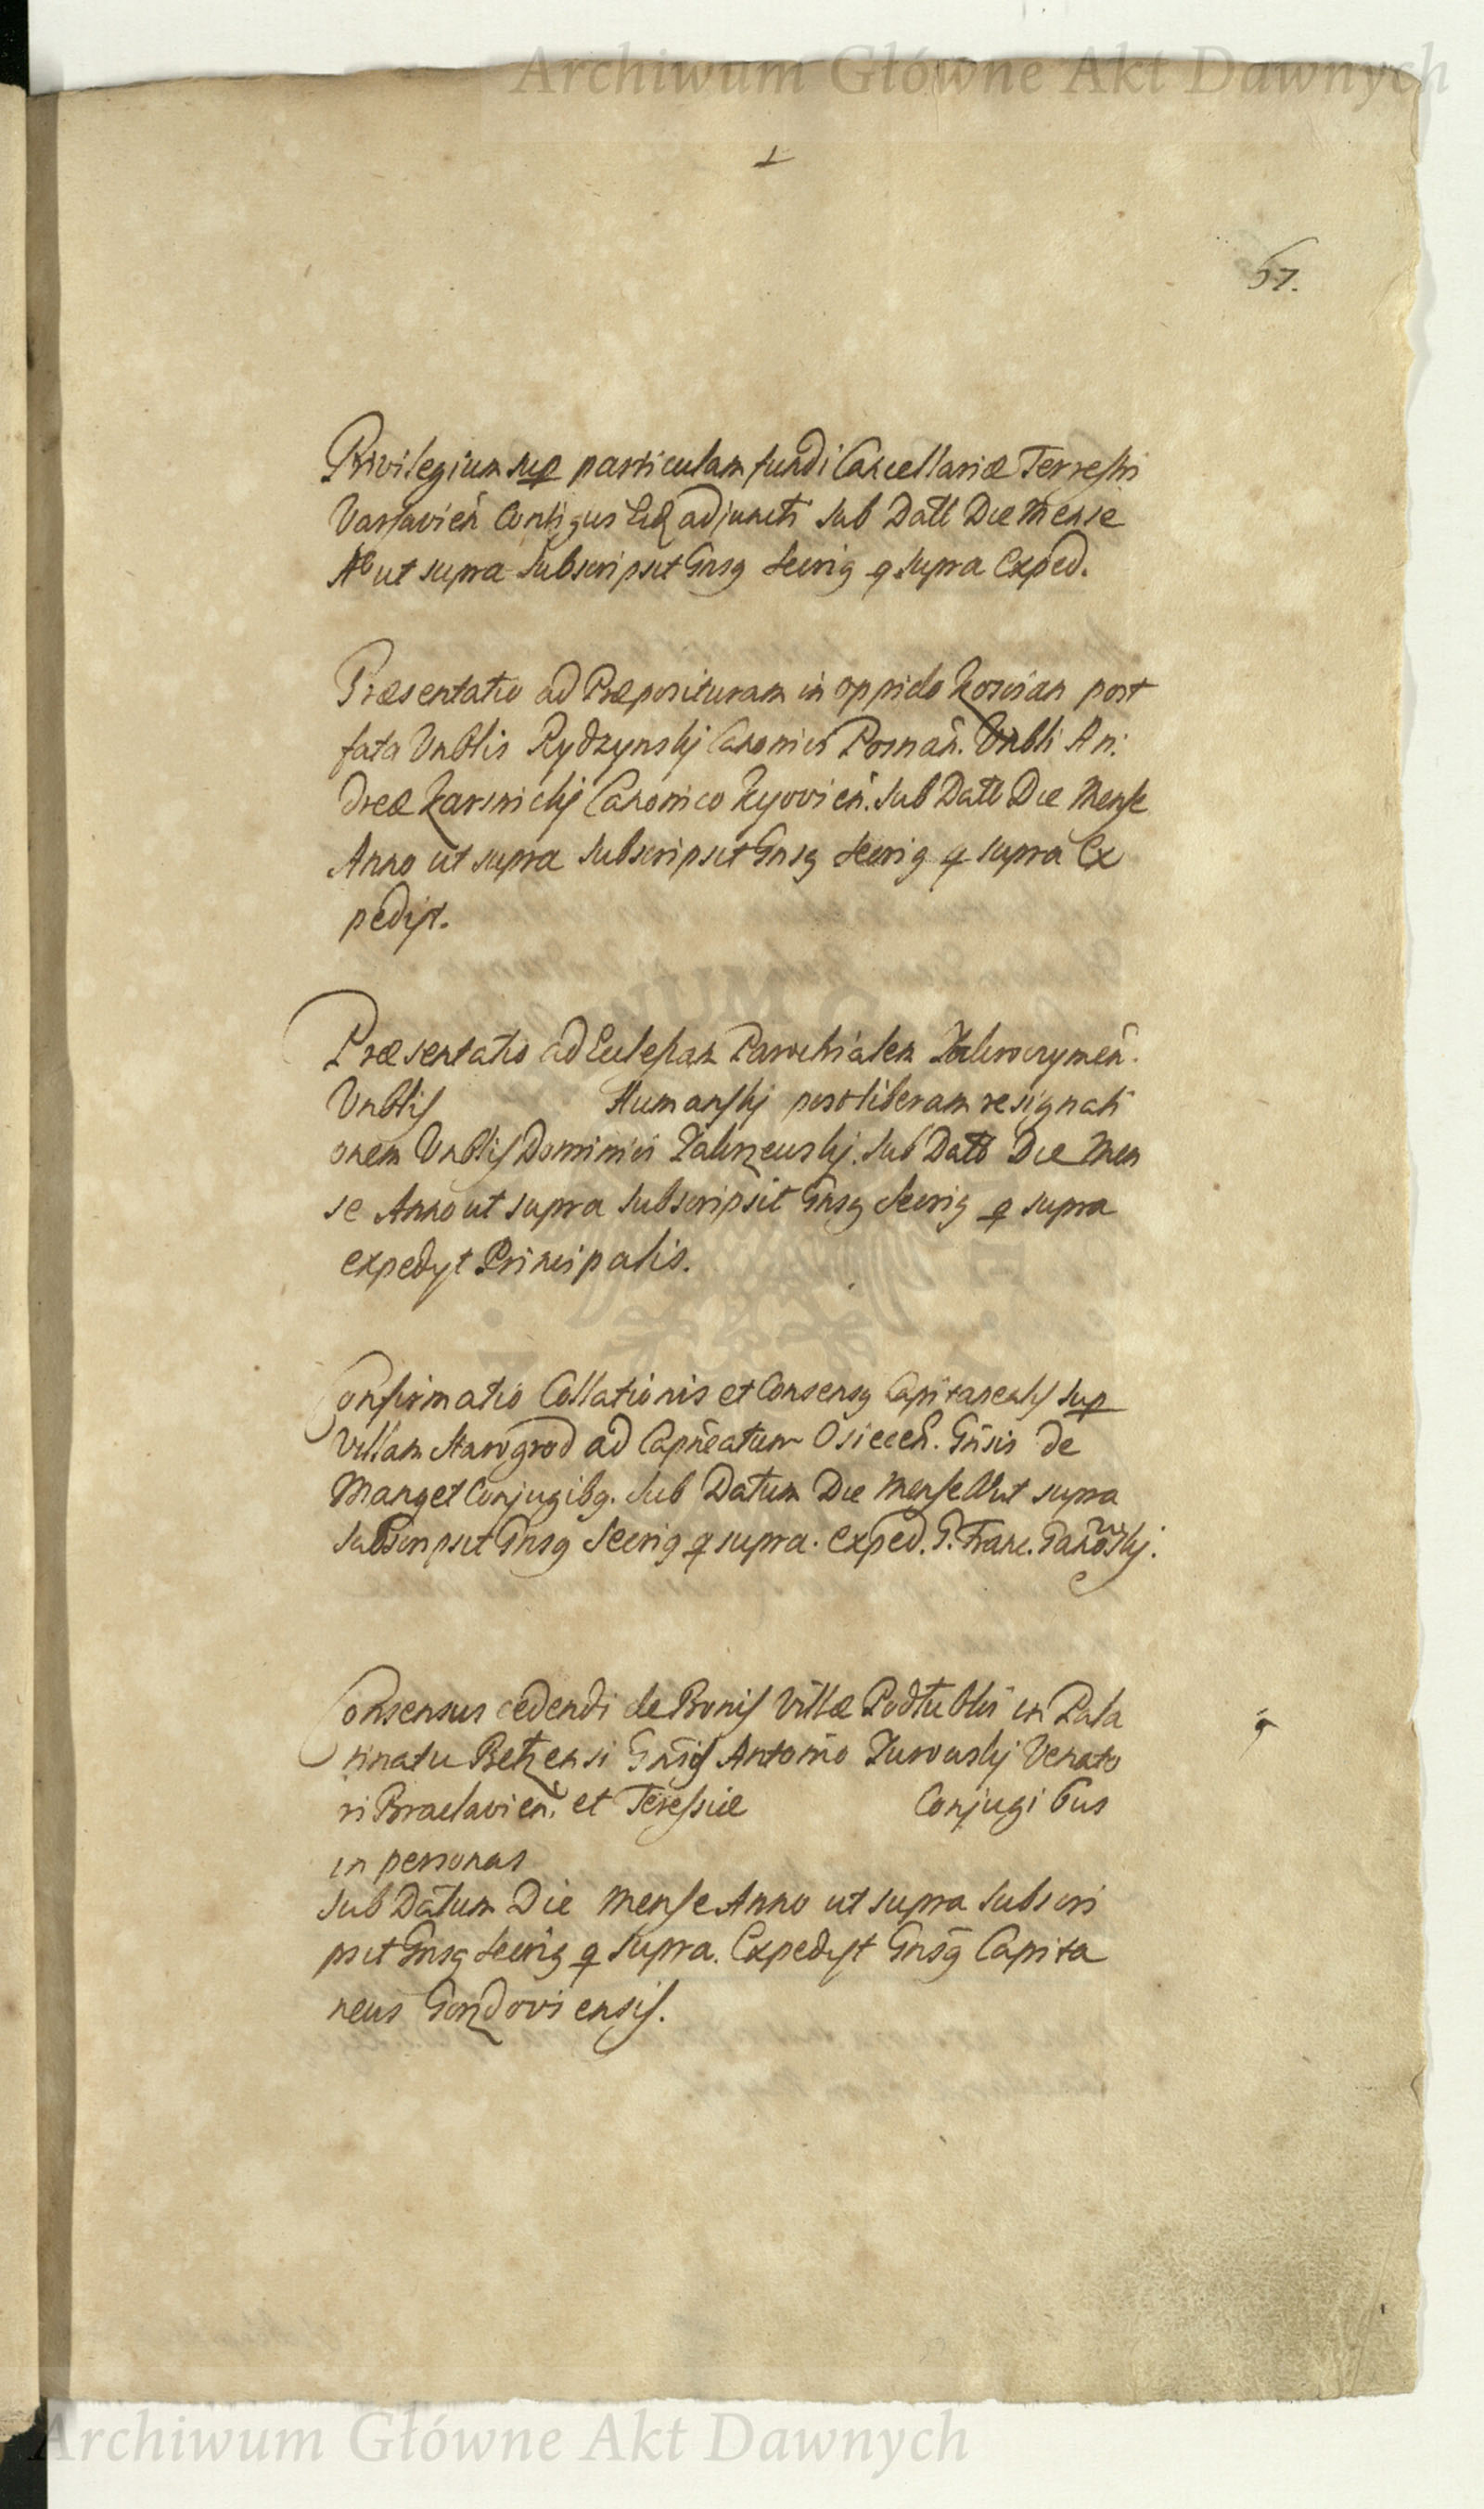 Archiwum Główne Akt Dawnych
57.
Privilegium sup particulam fundi Cancellariæ Terrestri
Varsavien̄ Contigus adjuncti Sub Datt Die Mense
Ao ut supra Subscripsit Gnsq Secrig q supra Exped.
Præsentatio ad Præposituram in oppido Koscian post
fata Vnblis Rydzynskj Canonici Posnan̄. Vnbli An:
dreæ Karsnickj Canonico Kyovien̄. Sub Datt Die Mense
Anno ut supra Subscripsit Gnsq Secrig q supra Ex
pedijt.
Præsentatio ad Ecclesiam Parochialem Zakroczymen̄.
Vnblis Humanskj post liberam resignati
onem Vnblis Dominici Zakrzewskj. Sub Datt Die Men
se Anno ut supra Subscripsit Gnsq Secrig q supra
expedyt Principalis.
Confirmatio Collationis et Consensq Capitanealis sup
Villam Starogrod ad Capn̄eatum Osiecen̄. Gn̄sis de
Manget Conjugibq. Sub Datum Die Mense ut supra
Subscripsit Gnsq Secrig q supra. Exped. G. Franc.
Consensus cedendi de Bonis Villæ in Pala
tinatu Betzensi Gn̄sis Antonio Zurowskj Venato
ri Braclavien̄. et Teressiæ Conjugibus
in personas
Sub Datum Die Mense Anno ut supra Subscri
psit Gnsq Secrig q supra. Expedijt Gnsq Capita
neus Gorzdoviensis.
Archiwum Główne Akt Dawnych